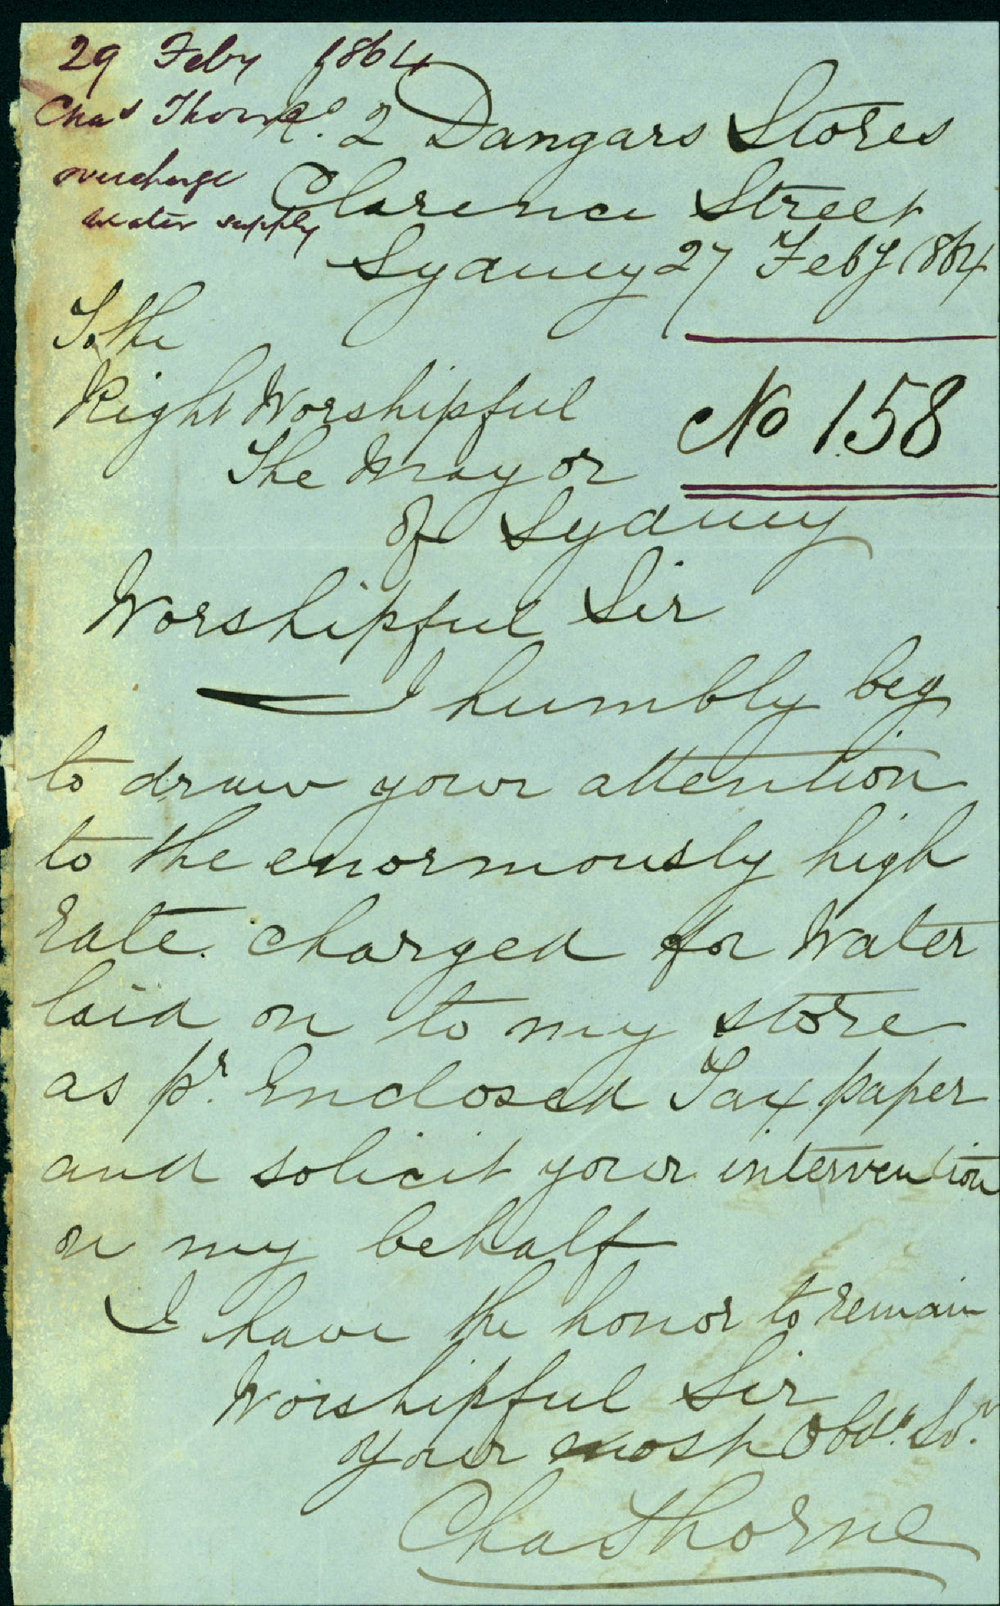 29 Feby 1864
Chas Thorne
overcharge
water supply
No. 2 Dangars Stores
Clarence Street
Sydney 27 Feby 1864
To the
Right Worshipful
The Mayor
of Sydney
No 158
Worshipful Sir
I humbly beg
to draw your attention
to the enormously high
rate charged for Water
laid on to my store
as pr. Enclosed Tax paper
and solicit your intervention
on my behalf
I have the honor to remain
Worshipful Sir
Your most Obdt. Svt.
Chas Thorne